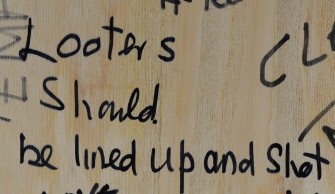 Looters
Should
be lined up and shot